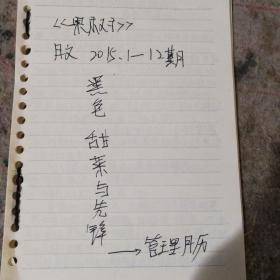 <<果叔子>>
月文 2015.1—12期
黑色甜菜与先锋
→管理月历